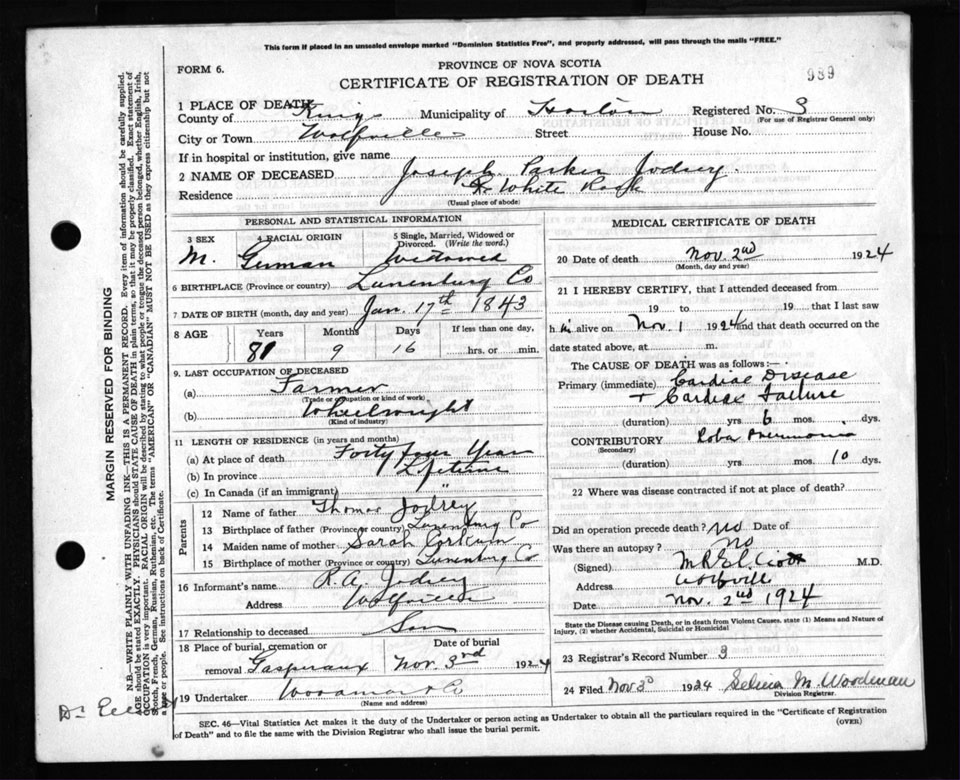 This form if placed in an unsealed envelope marked "Dominion Statistics Free", and properly addressed, will pass through the mails "FREE."
FORM 6.
PROVINCE OF NOVA SCOTIA
CERTIFICATE OF REGISTRATION OF DEATH
989
1 PLACE OF DEATH
County of Kings Municipality of Horton Registered No. 3
(For use of Registrar General only)
City or Town Wolfville Street House No.
If in hospital or institution, give name
2 NAME OF DECEASED Joseph Parker Jodrey
Residence White Rock
(Usual place of abode)
PERSONAL AND STATISTICAL INFORMATION
3 SEX 4 RACIAL ORIGIN 5 Single, Married, Widowed or Divorced. (Write the word.)
M. German Widowed
6 BIRTHPLACE (Province or country) Lunenburg Co
7 DATE OF BIRTH (month, day and year) Jan. 17th 1843
8 AGE Years Months Days If less than one day,
81 9 16 hrs. or min.
9. LAST OCCUPATION OF DECEASED
(a) Farmer
(Trade or occupation or kind of work)
(b) Wheelwright
(Kind of industry)
11 LENGTH OF RESIDENCE (in years and months)
(a) At place of death Forty four Years
(b) In province Lifetime
(c) In Canada (if an immigrant) "
Parents
12 Name of father Thomas Jodrey
13 Birthplace of father (Province or country) Lunenburg Co
14 Maiden name of mother Sarah Corkum
15 Birthplace of mother (Province or country) Lunenburg Co
16 Informant's name R.A. Jodrey
Address Wolfville
17 Relationship to deceased Son
18 Place of burial, cremation or removal Date of burial
Gaspereaux Nov. 3rd 1924
19 Undertaker Woodman & Co
(Name and address)
MEDICAL CERTIFICATE OF DEATH
20 Date of death Nov. 2nd 1924
(Month, day and year)
21 I HEREBY CERTIFY, that I attended deceased from
19 to 19 that I last saw
h im alive on Nov. 1 1924 and that death occurred on the
date stated above, at m.
The CAUSE OF DEATH was as follows:—
Primary (immediate) Cardiac Disease
+ Cardiac Failure
(duration) yrs 6 mos. dys.
CONTRIBUTORY Pneumonia
(Secondary)
(duration) yrs. mos. 10 dys.
22 Where was disease contracted if not at place of death?
Did an operation precede death? no Date of
Was there an autopsy? No
(Signed) M.D.
Address Wolfville
Date Nov. 2nd 1924
State the Disease causing Death, or in death from Violent Causes, state (1) Means and Nature of
Injury, (2) whether Accidental, Suicidal or Homicidal
23 Registrar's Record Number 3
24 Filed Nov 3rd 1924 Selina M. Woodman
Division Registrar.
SEC. 46—Vital Statistics Act makes it the duty of the Undertaker or person acting as Undertaker to obtain all the particulars required in the "Certificate of Registration
of Death" and to file the same with the Division Registrar who shall issue the burial permit.
(OVER)
MARGIN RESERVED FOR BINDING
N.B.—WRITE PLAINLY WITH UNFADING INK—THIS IS A PERMANENT RECORD. Every item of information should be carefully supplied.
AGE should be stated EXACTLY. PHYSICIANS should STATE CAUSE OF DEATH in plain terms, so that it may be properly classified. Exact statement of
OCCUPATION is very important. RACIAL ORIGIN will be described by stating to what people or tongue the deceased person belonged, whether English, Irish,
Scotch, French, German, Russian, Ruthenian, etc. The terms "AMERICAN" OR "CANADIAN" MUST NOT BE USED as they express citizenship but not
a race or people. See instructions on back of Certificate.